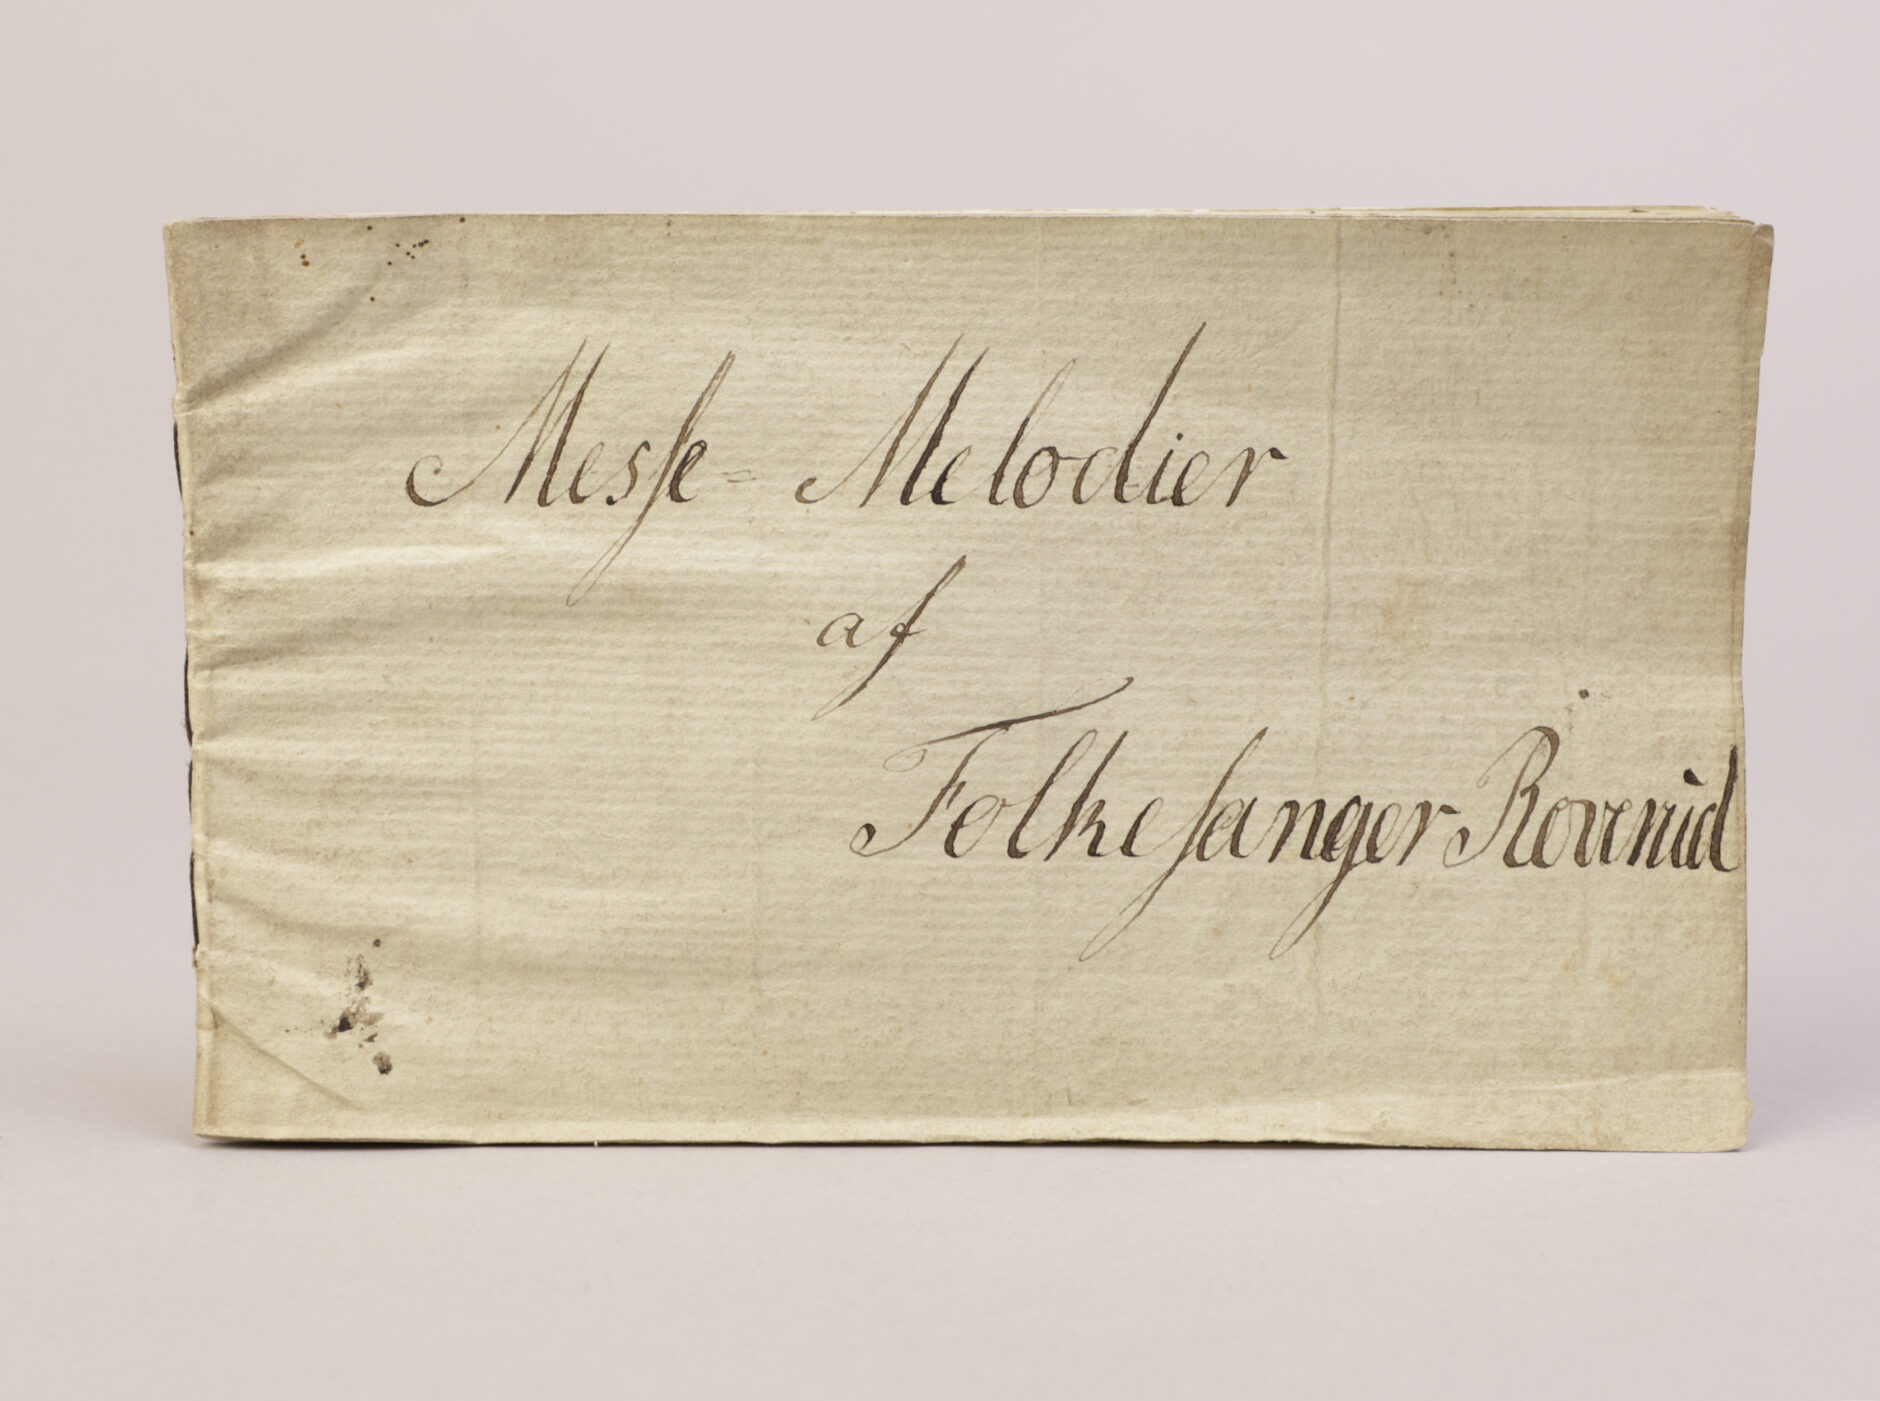 Messe= Melodier
af
Folkesanger